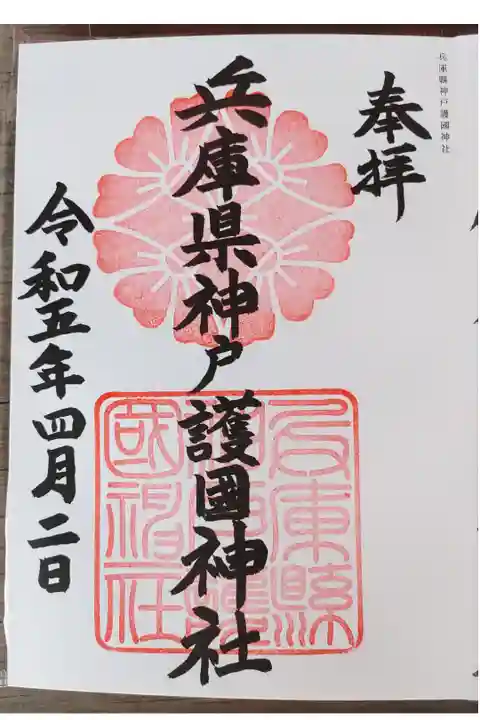 兵庫縣神戸護國神社
奉拝
兵庫県神戸護國神社
兵庫縣
神戸護
國神社
令和五年四月二日